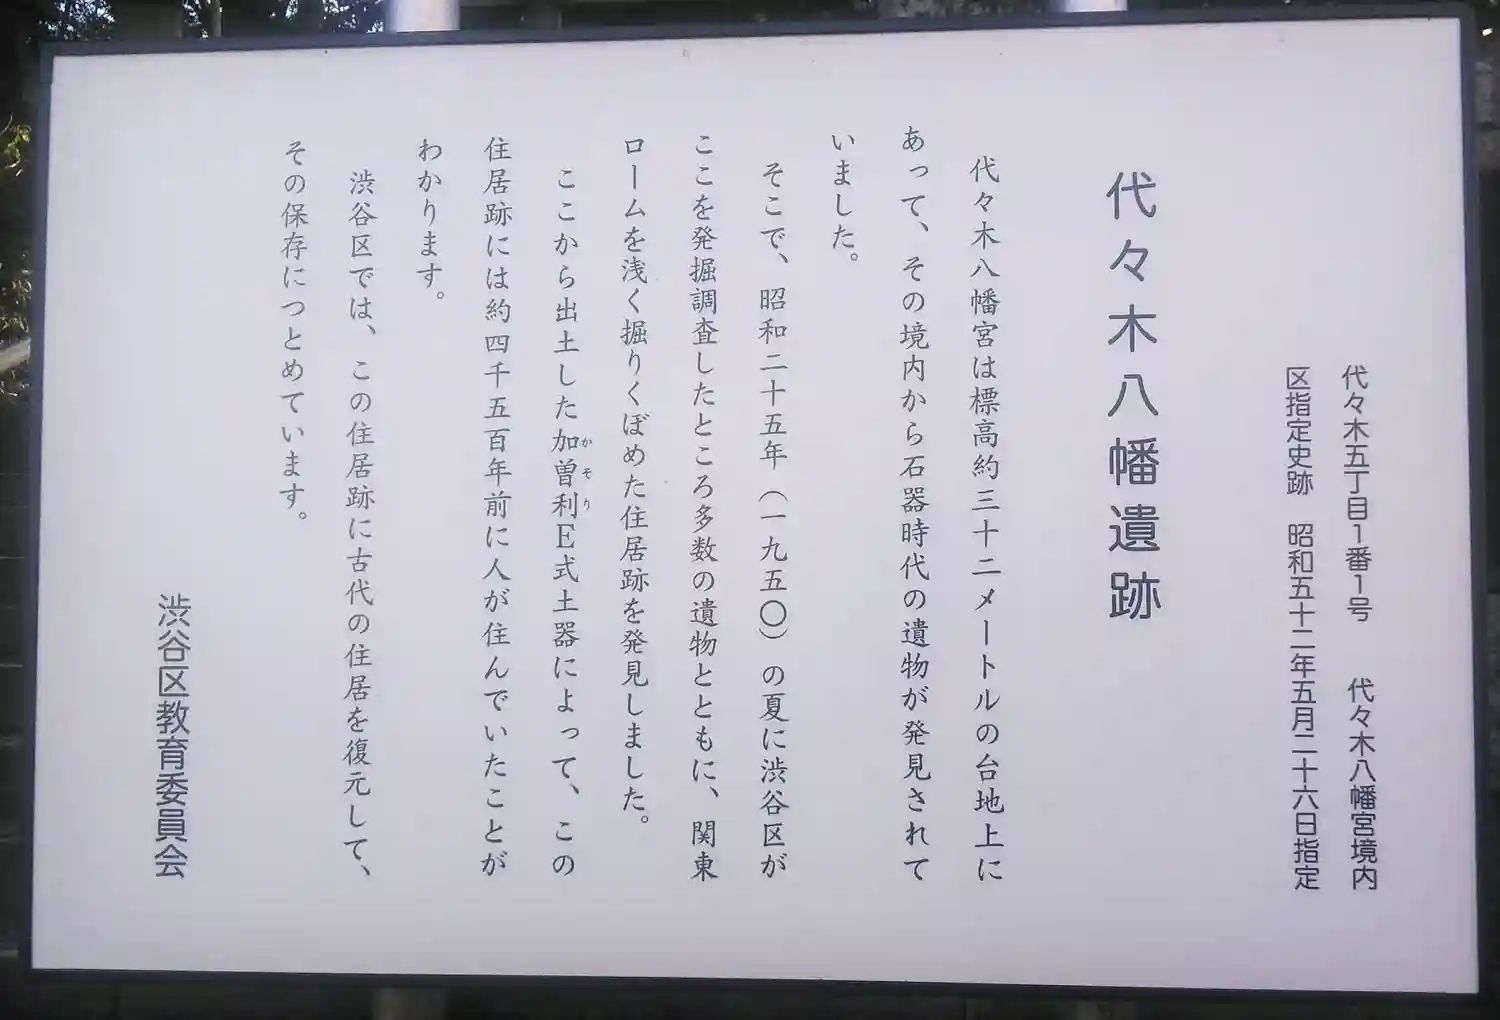 代々木五丁目1番1号　代々木八幡宮境内
区指定史跡　昭和五十二年五月二十六日指定
代々木八幡遺跡
代々木八幡宮は標高約三十二メートルの台地上に
あって、その境内から石器時代の遺物が発見されて
いました。
そこで、昭和二十五年（一九五〇）の夏に渋谷区が
ここを発掘調査したところ多数の遺物とともに、関東
ロームを浅く掘りくぼめた住居跡を発見しました。
ここから出土した加曽利E式土器によって、この
かそり
住居跡には約四千五百年前に人が住んでいたことが
わかります。
渋谷区では、この住居跡に古代の住居を復元して、
その保存につとめています。
渋谷区教育委員会